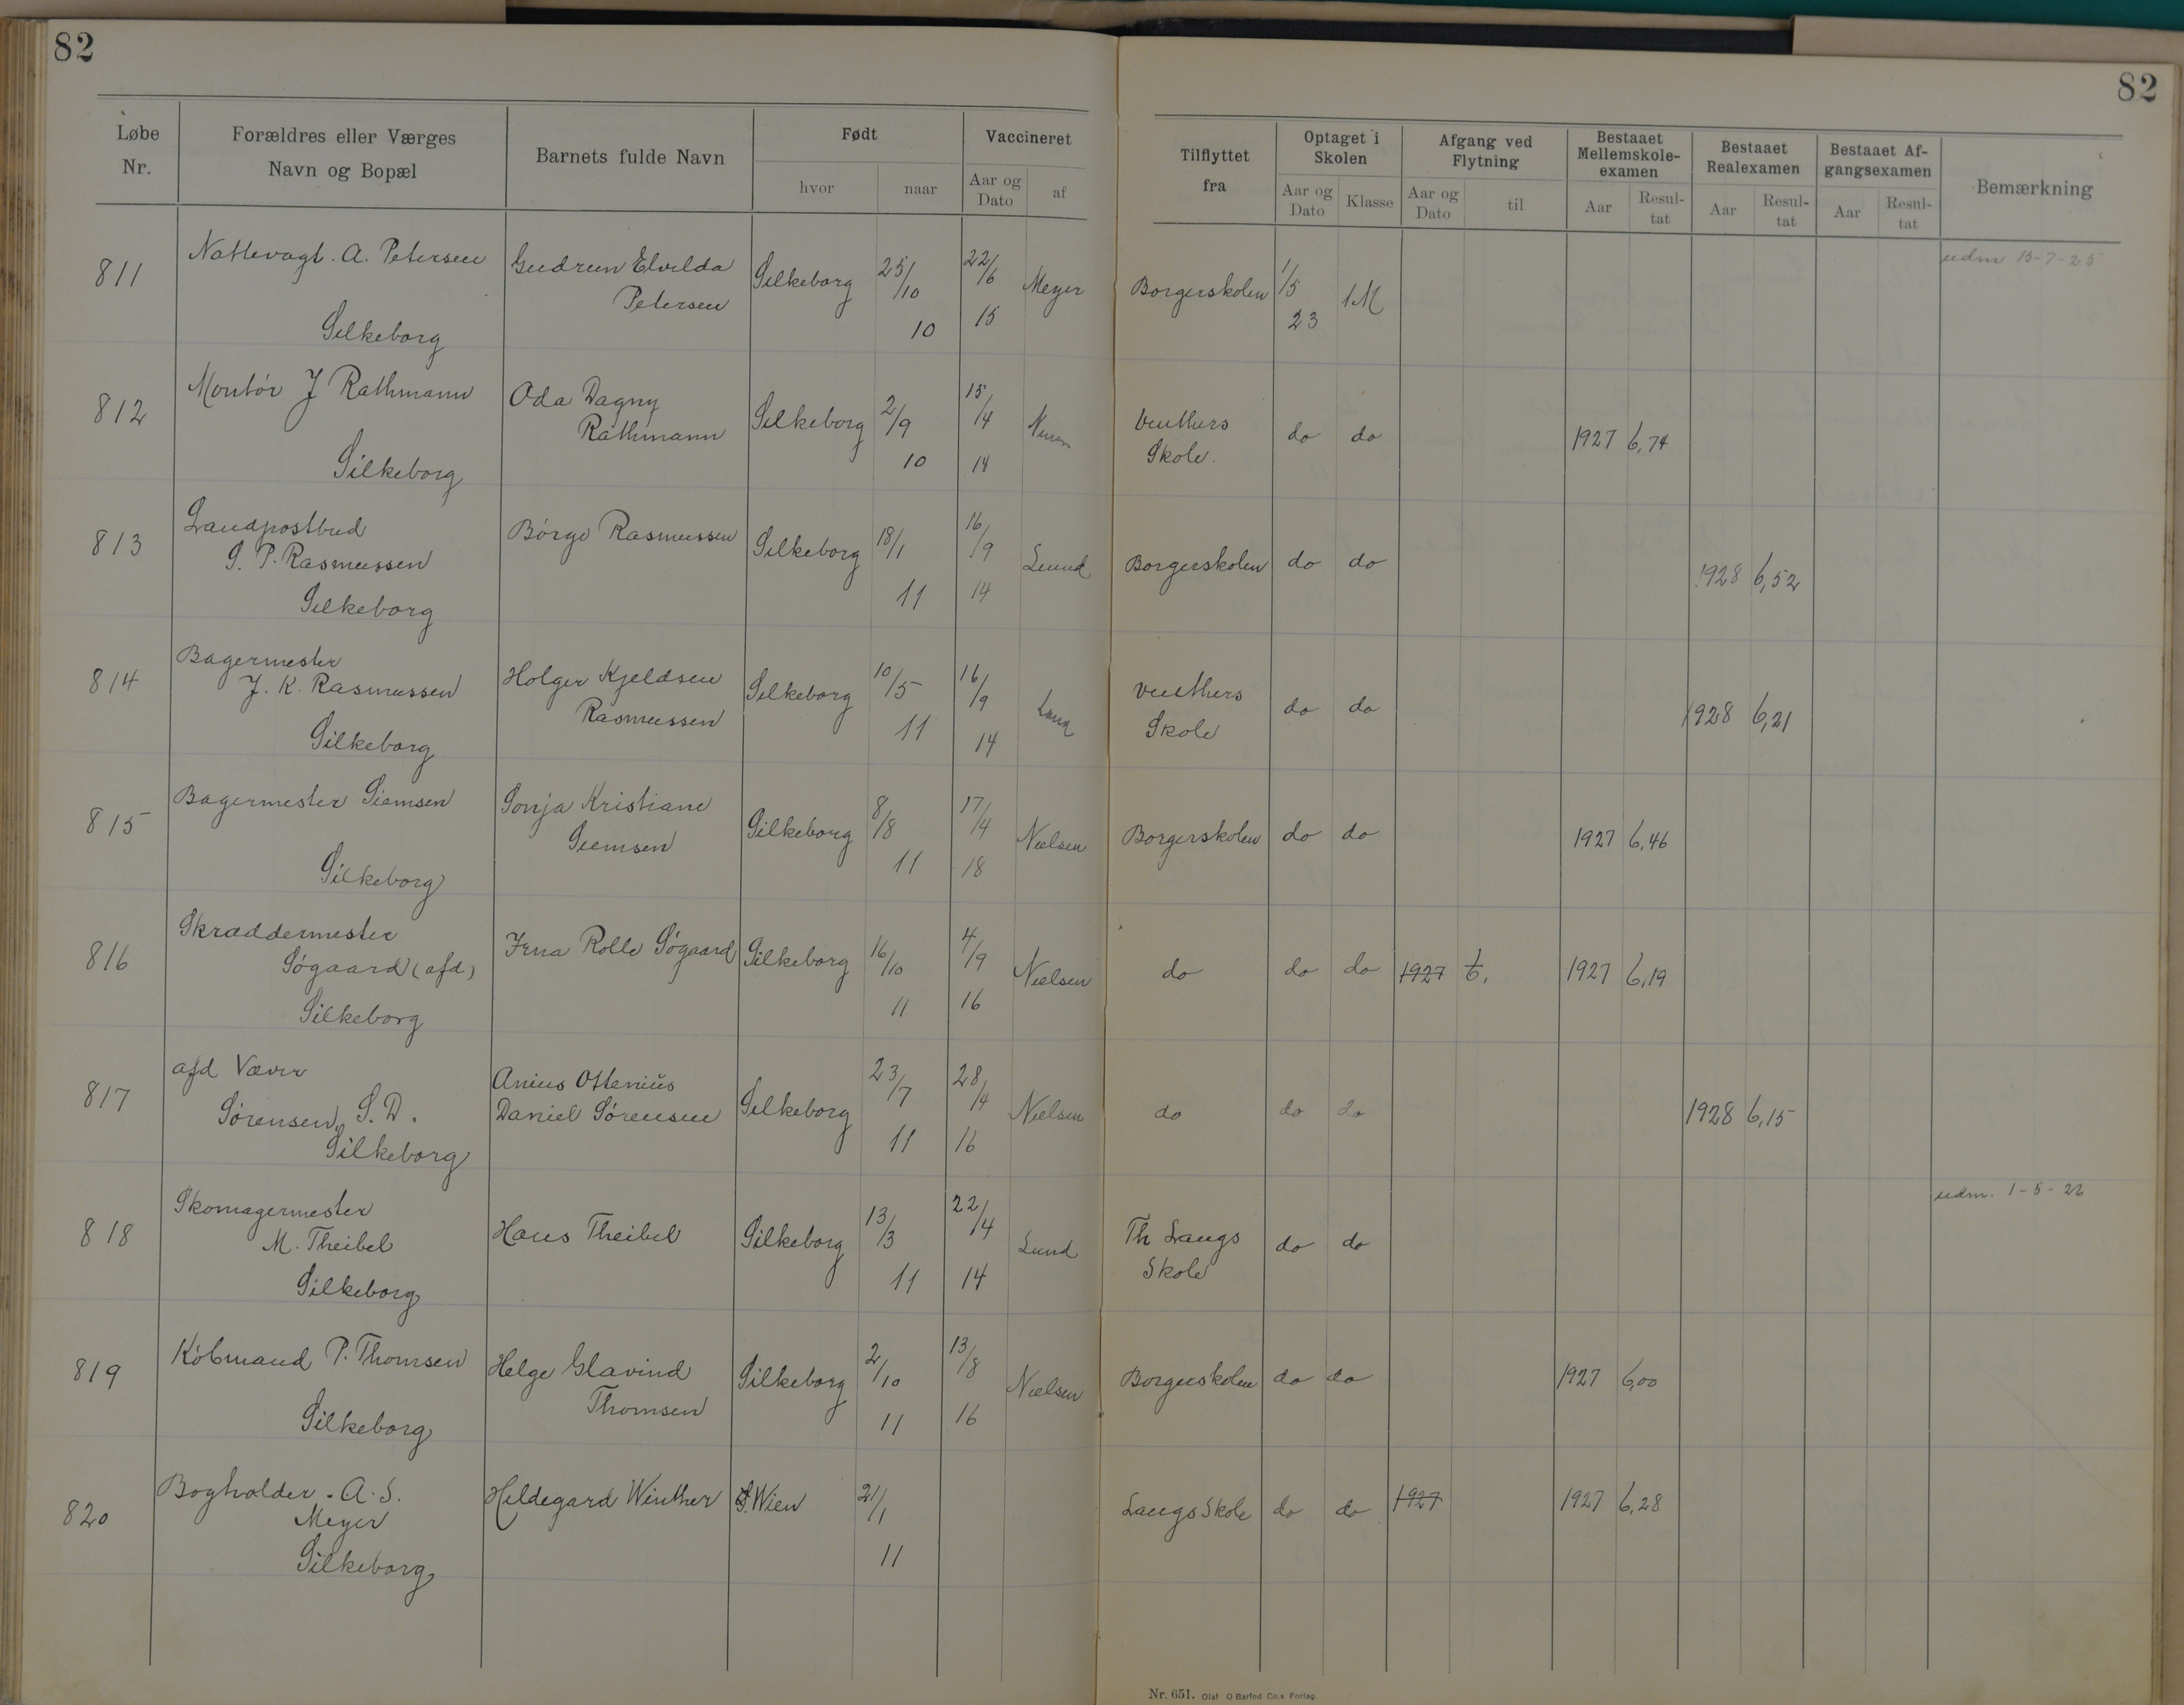 82
82
Løbe Nr.
Forældres eller Værges Navn og Bopæl
Barnets fulde Navn
Født
hvor
naar
Vaccineret
Aar og Dato
af
Tilflyttet fra
Optaget i Skolen
Aar og Dato
Klasse
Afgang ved Flytning
Aar og Dato
til
Bestaaet Mellemskole-examen
Aar
Resul-tat
Bestaaet Realexamen
Aar
Resul-tat
Bestaaet Af-gangsexamen
Aar
Resul-tat
Bemærkning
811 Nattevagt. A. Petersen Gudrun Elvilda Silkeborg 25/10 22/6 Meyer Borgerskolen 1/5 1M udm 15-7-25
Petersen 10 15 23
Silkeborg
812 Montör J Rathmann Oda Dagny Silkeborg 2/9 15/4 Winthers do do 1927 6,74
Rathmann 10 14 Skole.
Silkeborg
813 Landpostbud Börge Rasmussen Silkeborg 18/1 16/9 Lund Borgerskolen do do 1928 6,52
S. P. Rasmussen 11 14
Silkeborg
814 Bagermester Holger Kjeldsen Silkeborg 10/5 16/9 Winthers do do 1928 6,21
J. K. Rasmussen Rasmussen 11 14 Skole
Silkeborg
815 Bagermester Siemsen Sonja Kristiane Silkeborg 8/8 17/4 Nielsen Borgerskolen do do 1927 6,46
Siemsen 11 18
Silkeborg
816 Skræddermester Irna Rolle Sögaard Silkeborg 16/10 4/9 Nielsen do do do 1927 1927 6,19
Sögaard (afd) 11 16
Silkeborg
817 afd Væver Anius Ottenius Silkeborg 23/7 28/4 Nielsen do do do 1928 6,15
Sörensen, S. D. Daniel Sörensen 11 16
Silkeborg
818 Skomagermester Hans Theibel Silkeborg 13/3 22/4 Lund Th Langs do do udm. 1-5-26
M. Theibel 11 14 Skole
Silkeborg
819 Köbmand P. Thomsen Helge Glavind Silkeborg 2/10 13/8 Nielsen Borgerskolen do do 1927 6,00
Thomsen 11 16
Silkeborg
820 Bogholder. A. S. Hildegard Winther Wien 21/1 Langs Skole do do 1927 1927 6,28
Meyer 11
Silkeborg
Nr. 651. Olaf O Barfod Co.s Forlag.